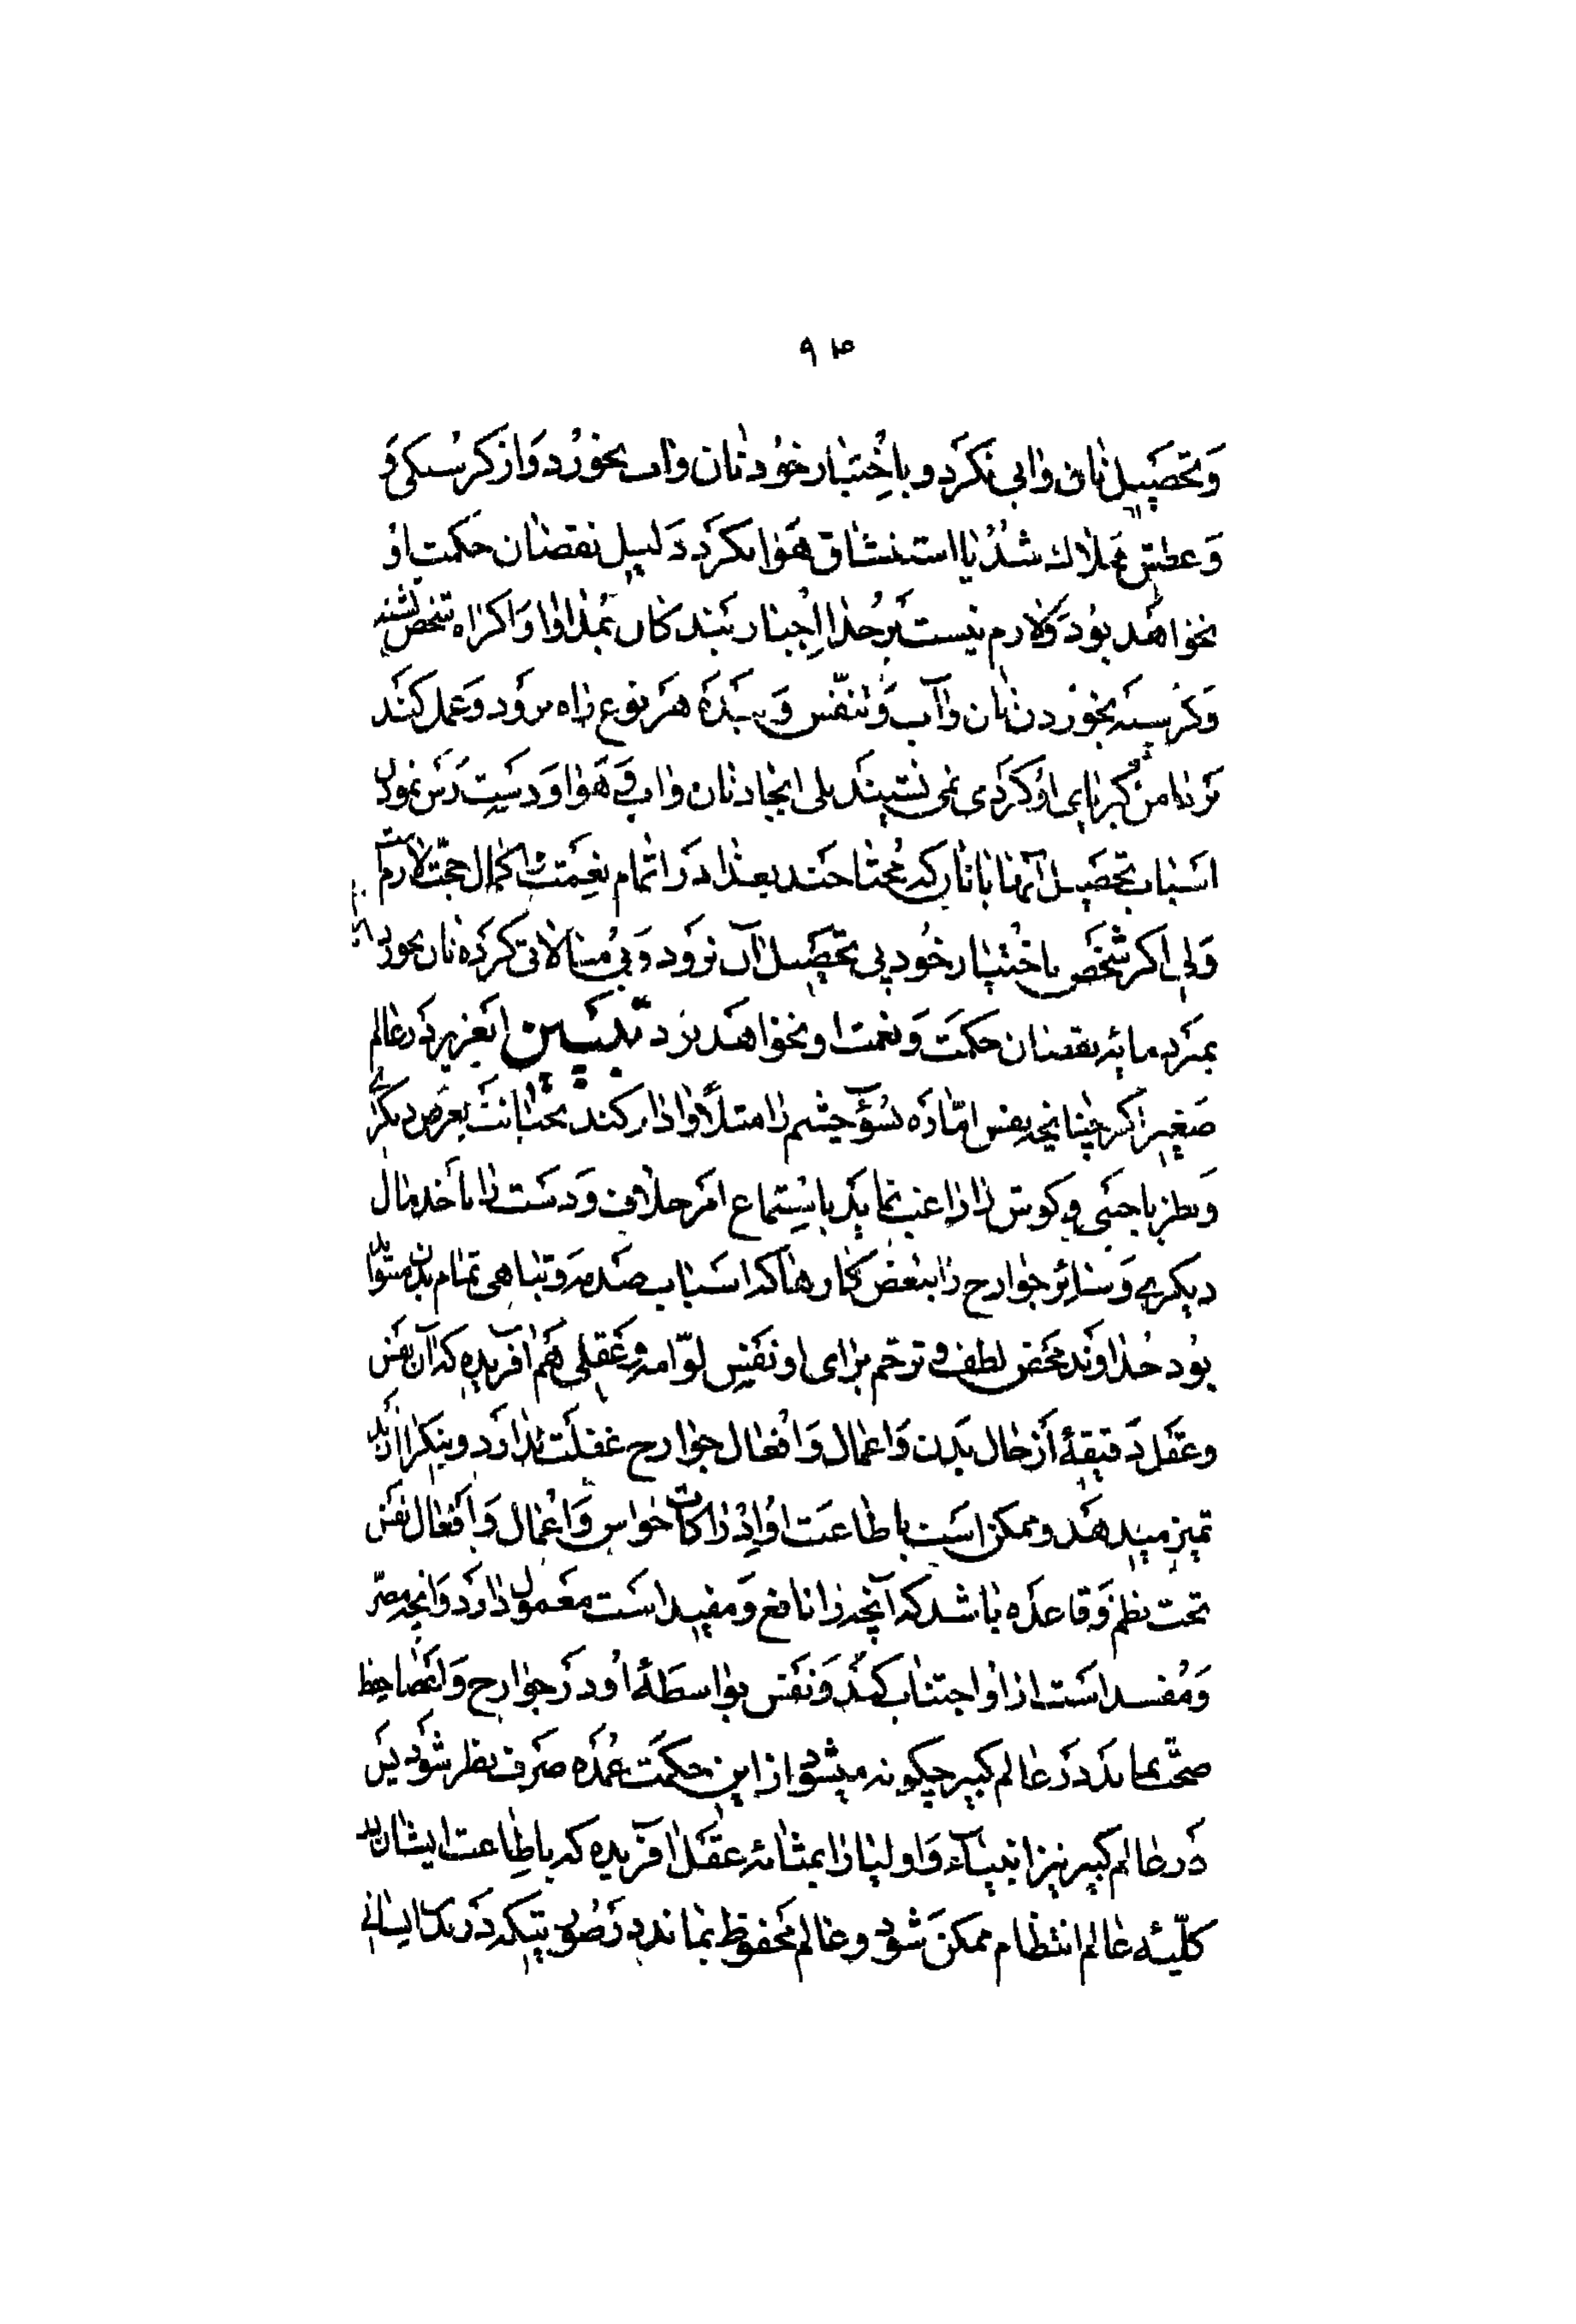 ۹۳
وَتحصیل نان وابی نکرَد و باختیار خود نان واب بخورد وَاز کرسنکی وَ
وَعطش هلاك شدُ یا استنشاق هوا نکرَد دَلیل نقصان حکمت او
نخواهَد بوُد وَلازم نیست برخدا اِجبار بندکان بمداوا وَاکراه شخص تشنه
وَکرسنه بخورْدن نان وآب وَتنفّس وَ هَر نوع راه برَود وَعمل کنَد
بر دامن کبریای او کَردی نمی نشیند بلی ایجاد نان واب وَ هَوا وَدستْ رَس نمودن
اسَباب تحصیل آنها بانانکه محتاجند بعذا دَر اتمام نعمت و اکمال حجّت لازم است
وَلی اکر شخص باختیار خود پی تحصیل آن نرَود وَبی مبالاتی کرَده نان نخورد
بمیرَد مایه نقصان حکمت وَنعمت او نخواهَد بوَد تبیین ایعزیز در عالم
صَغیر اکر چنانچه نفس امّاره بسُوء چشم را مثلاً وادار کند بخیانت بعرض دیکری
وَنظر باجنبی وکوش را راغب نماید باستماع امَر خلاف وَدست را باخذ مال
دیکری وَسائر جوارح را ببعض کارها که اسباب صَدمه وَتباهی تمام بدن میتواند
بوُد خداوند محض لطف و ترحّم برای او نفس لوّامه وعَقلی هَم آفریده که آن نفس
وعقل دَقیقهٔ از حال بدن وَاعمال وَافعال جوارح غفلت ندارَد و نیک را از بد
تمیز میدهَد وممکن است باطاعت او اِدراکات حَواس وَاعمال وَافعال نفس
تحت نظم وَقاعدَه باشد که آنچه را نافع وَمفید است معمول دارَد وَانچه مضر
وَمُفسد است از او اجتناب کند وَنفس بواسطهٔ او دَر جوارح وَاعضا حفظ
صحّت نماید دَر عالم کبیر چکونه میشود از این حکمت عُمدَه صَرف نظر شوَد پس
دَر عالم کبیر نیز انبیاء وَاولیا را بمثابهٔ عقل آفریده که باطِاعت ایشان در
کلّیّه عالم انتظام ممکن شَود وعالم محفوظ بماند در صُورتیکه دَر یك انسانی